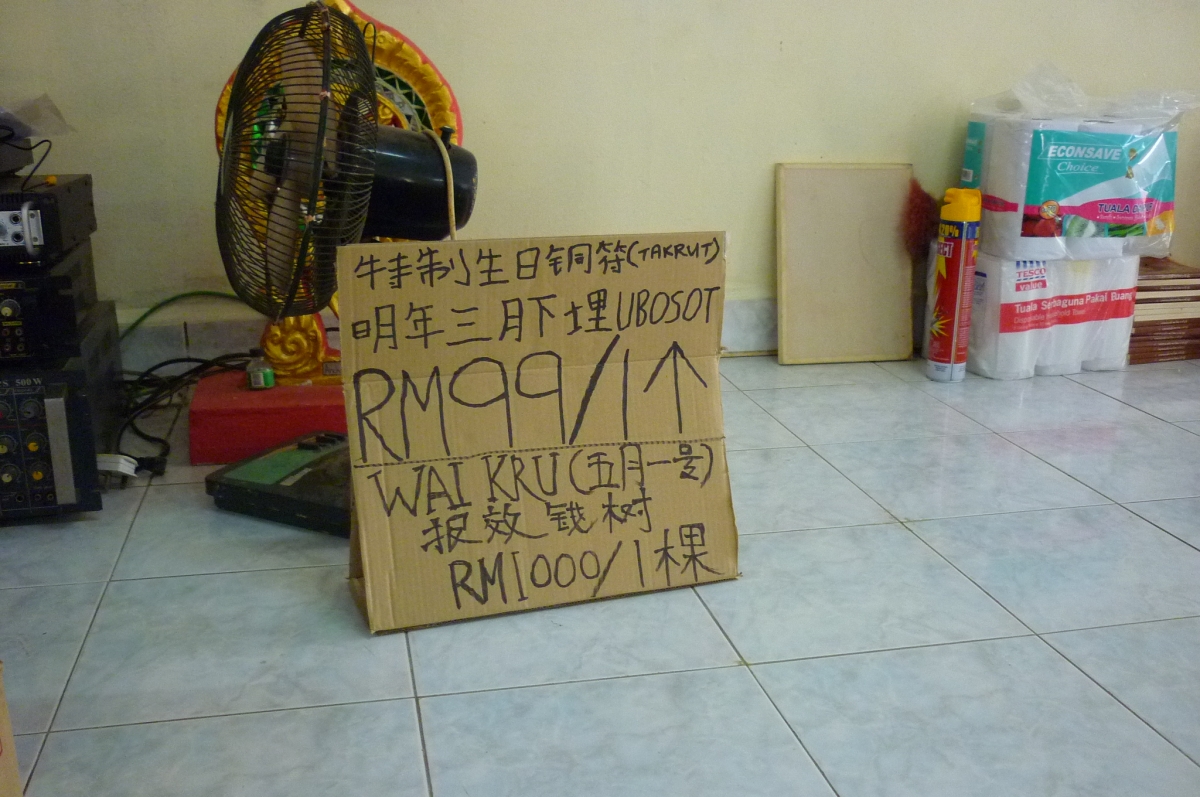 特制生日铜符(TAKRUT)
明年三月下埋UBOSOT
RM99/1↑
WAI KRU(五月一号)
报效钱树
RM1000/1棵
ECONSAVE
Choice
TUALA
TESCO
value
Tuala Serbaguna Pakai Buang
500 W